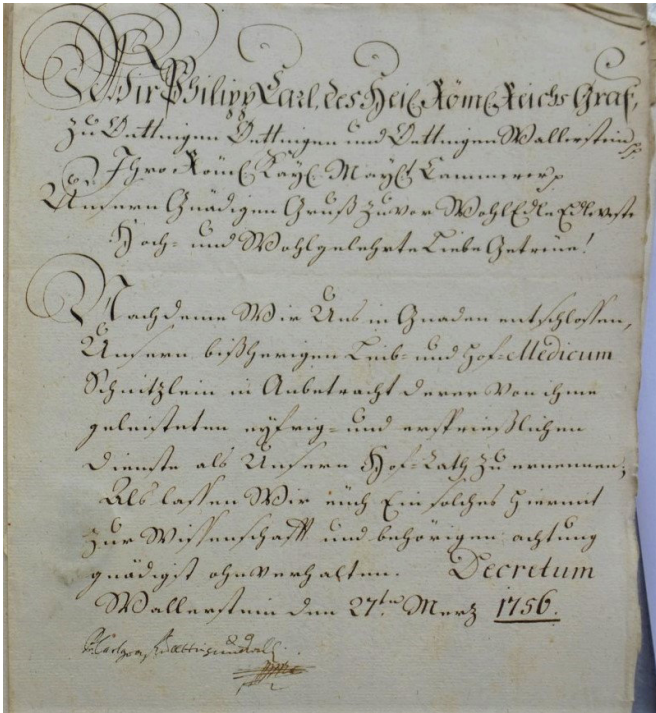 Wir Philipp Carl, des Heil. Röm. Reichs Graf,
zu Oettingen Oettingen und Oettingen Wallerstein,
Ihro Röm. Kay. May. Cammerer
Unsern Gnädigen Gruß zuvor WohlEdle Edlveste
Hoch- und Wohlgelehrte Liebe Getreüe!
Nachdeme Wir Uns in Gnaden entschlossen,
Unsern bißherigen Leib- und Hof-Medicum
Schnitzlein in Anbetracht derer von ihme
geleisteten eyfrig- und ersprießlichen
Dienste als Unsern Hof-Rath zu ernennen;
Als lassen Wir eüch Ein solches hiermit
zur Wissenschafft und behörigen achtung
gnädigst ohnverhalten. Decretum
Wallerstein den 27ten Merz 1756.